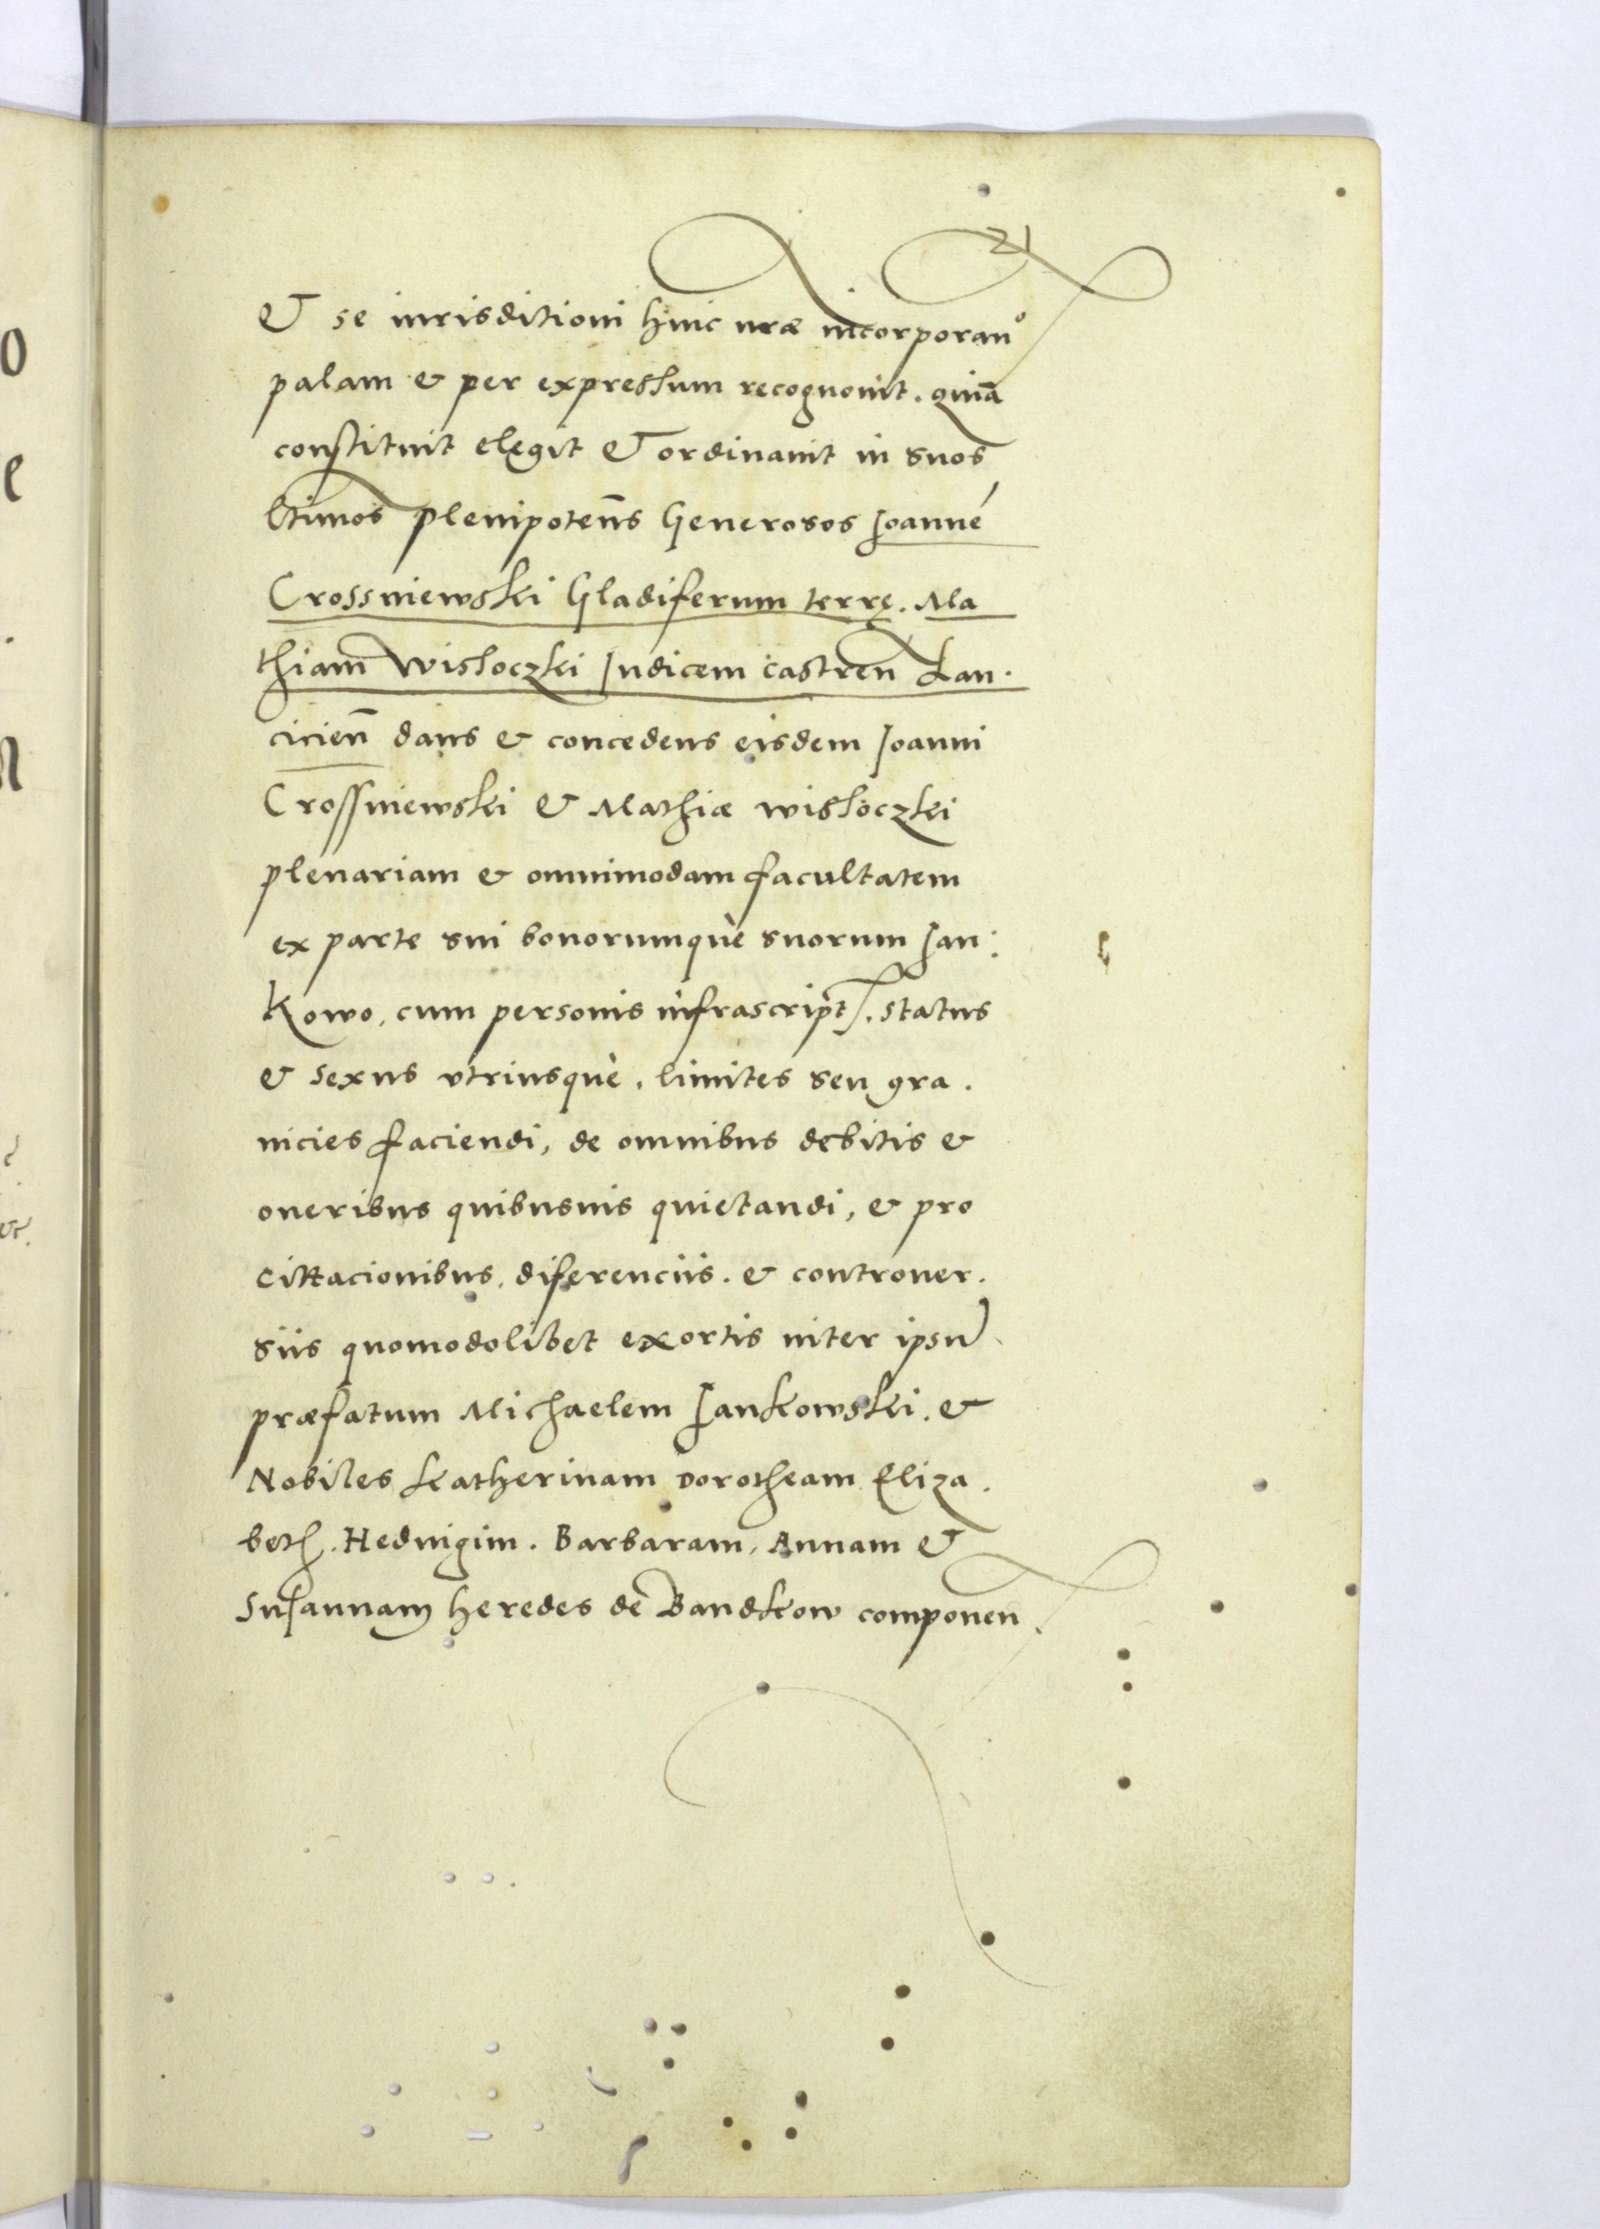 21
& se iurisditioni huic nræ incorporan°
palam & per expressum recognouit. quia
constituit elegit & ordinauit in suos
ltimos plenipotens Generosos Joanné
Crossniewski Gladiferum terrę. Ma
thiam Wisloczki Judicem castren Lan.
cicien dans & concedens eisdem Joanni
Crossniewski & Mathiæ Wisloczki
plenariam & omnimodam facultatem
ex parte sui bonorumquè suorum Jan:
kowo, cum personis infrascript. status
& sexus vtriusquè, limites seu gra.
nicies faciendi, de omnibus debitis &
oneribus quibusuis quietandi, & pro
cittacionibus, diferenciis. & controuer.
siis quomodolibet exortis inter ipsū
præfatum Michaelem Jankowski. &
Nobiles Katherinam Dorotheam Eliza.
beth. Heduigim. Barbaram, Annam &
Susannam heredes de Bandkow componen.